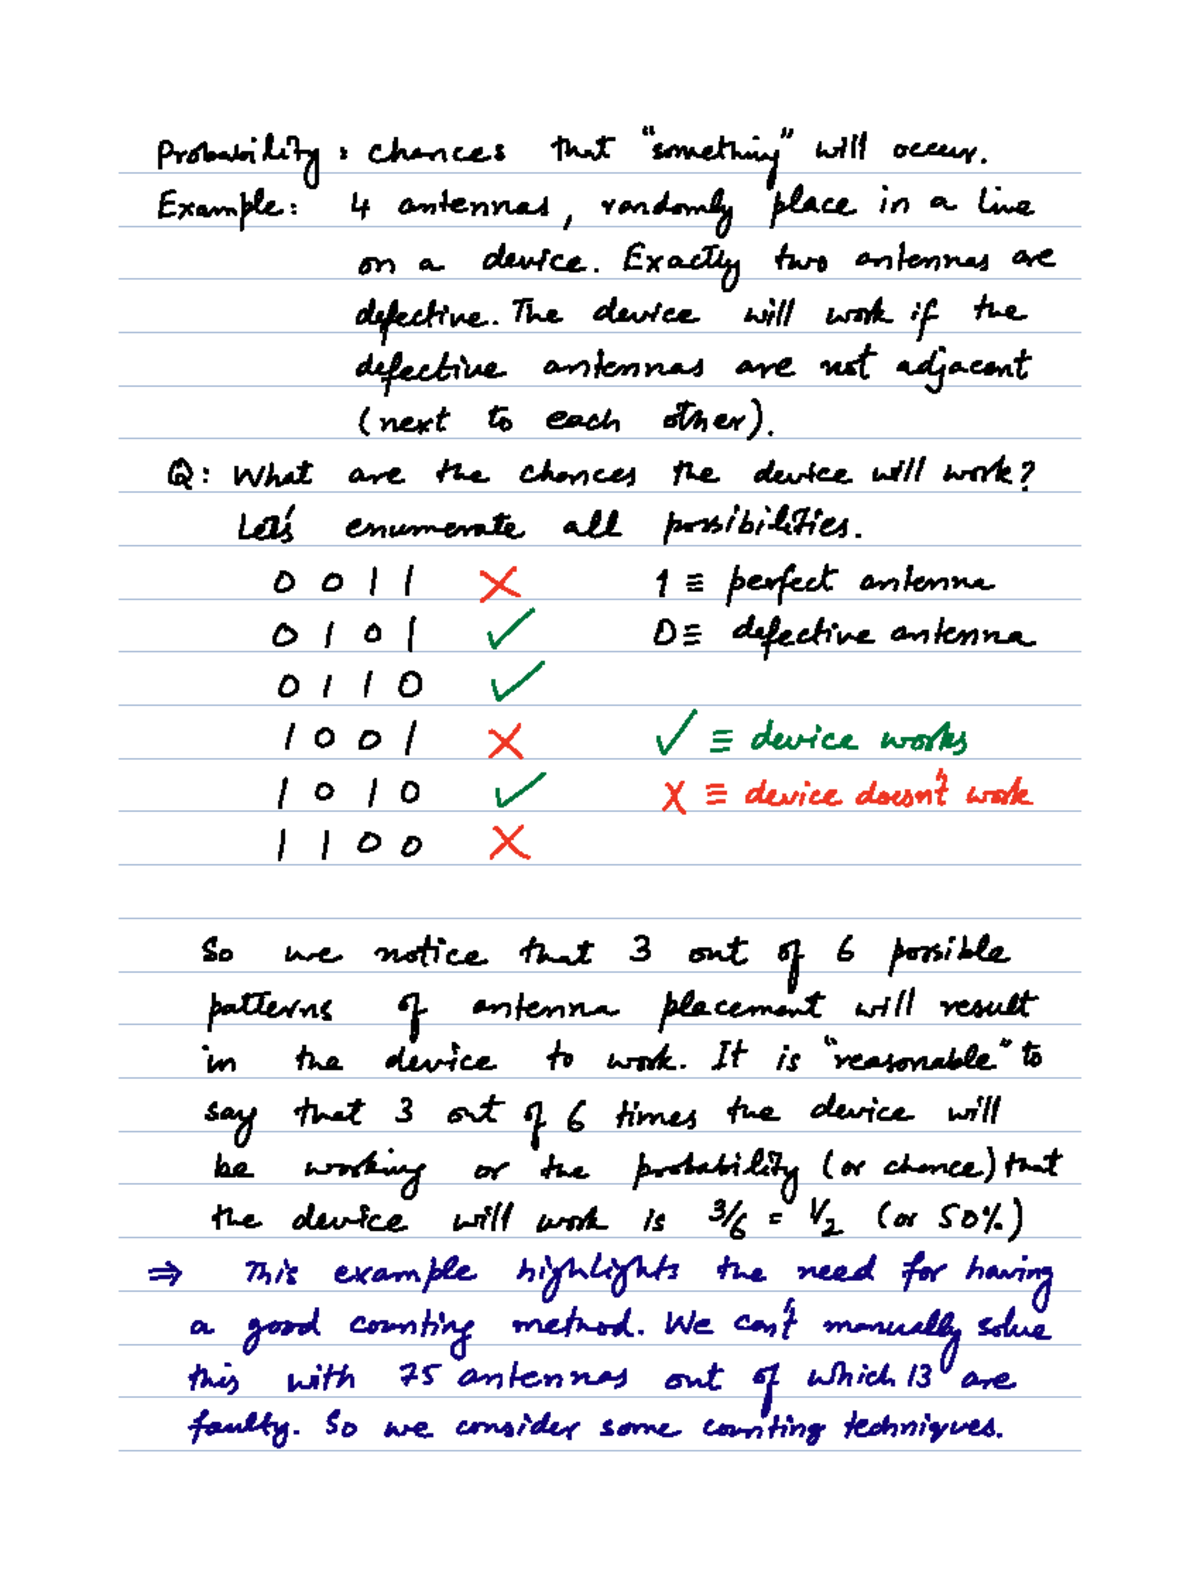 Probability : chances that "something" will occur.
Example: 4 antennas, randomly place in a line
on a device. Exactly two antennas are
defective. The device will work if the
defective antennas are not adjacent
(next to each other).
Q: What are the chances the device will work?
Let's enumerate all possibilities.
0 0 1 1 ✗ 1 ≡ perfect antenna
0 1 0 1 ✓ 0 ≡ defective antenna
0 1 1 0 ✓
1 0 0 1 ✗ ✓ ≡ device works
1 0 1 0 ✓ X ≡ device doesn't work
1 1 0 0 ✗
So we notice that 3 out of 6 possible
patterns of antenna placement will result
in the device to work. It is "reasonable" to
say that 3 out of 6 times the device will
be working or the probability (or chance) that
the device will work is 3/6 = 1/2 (or 50%)
⇒ This example highlights the need for having
a good counting method. We can't manually solve
this with 75 antennas out of which 13 are
faulty. So we consider some counting techniques.